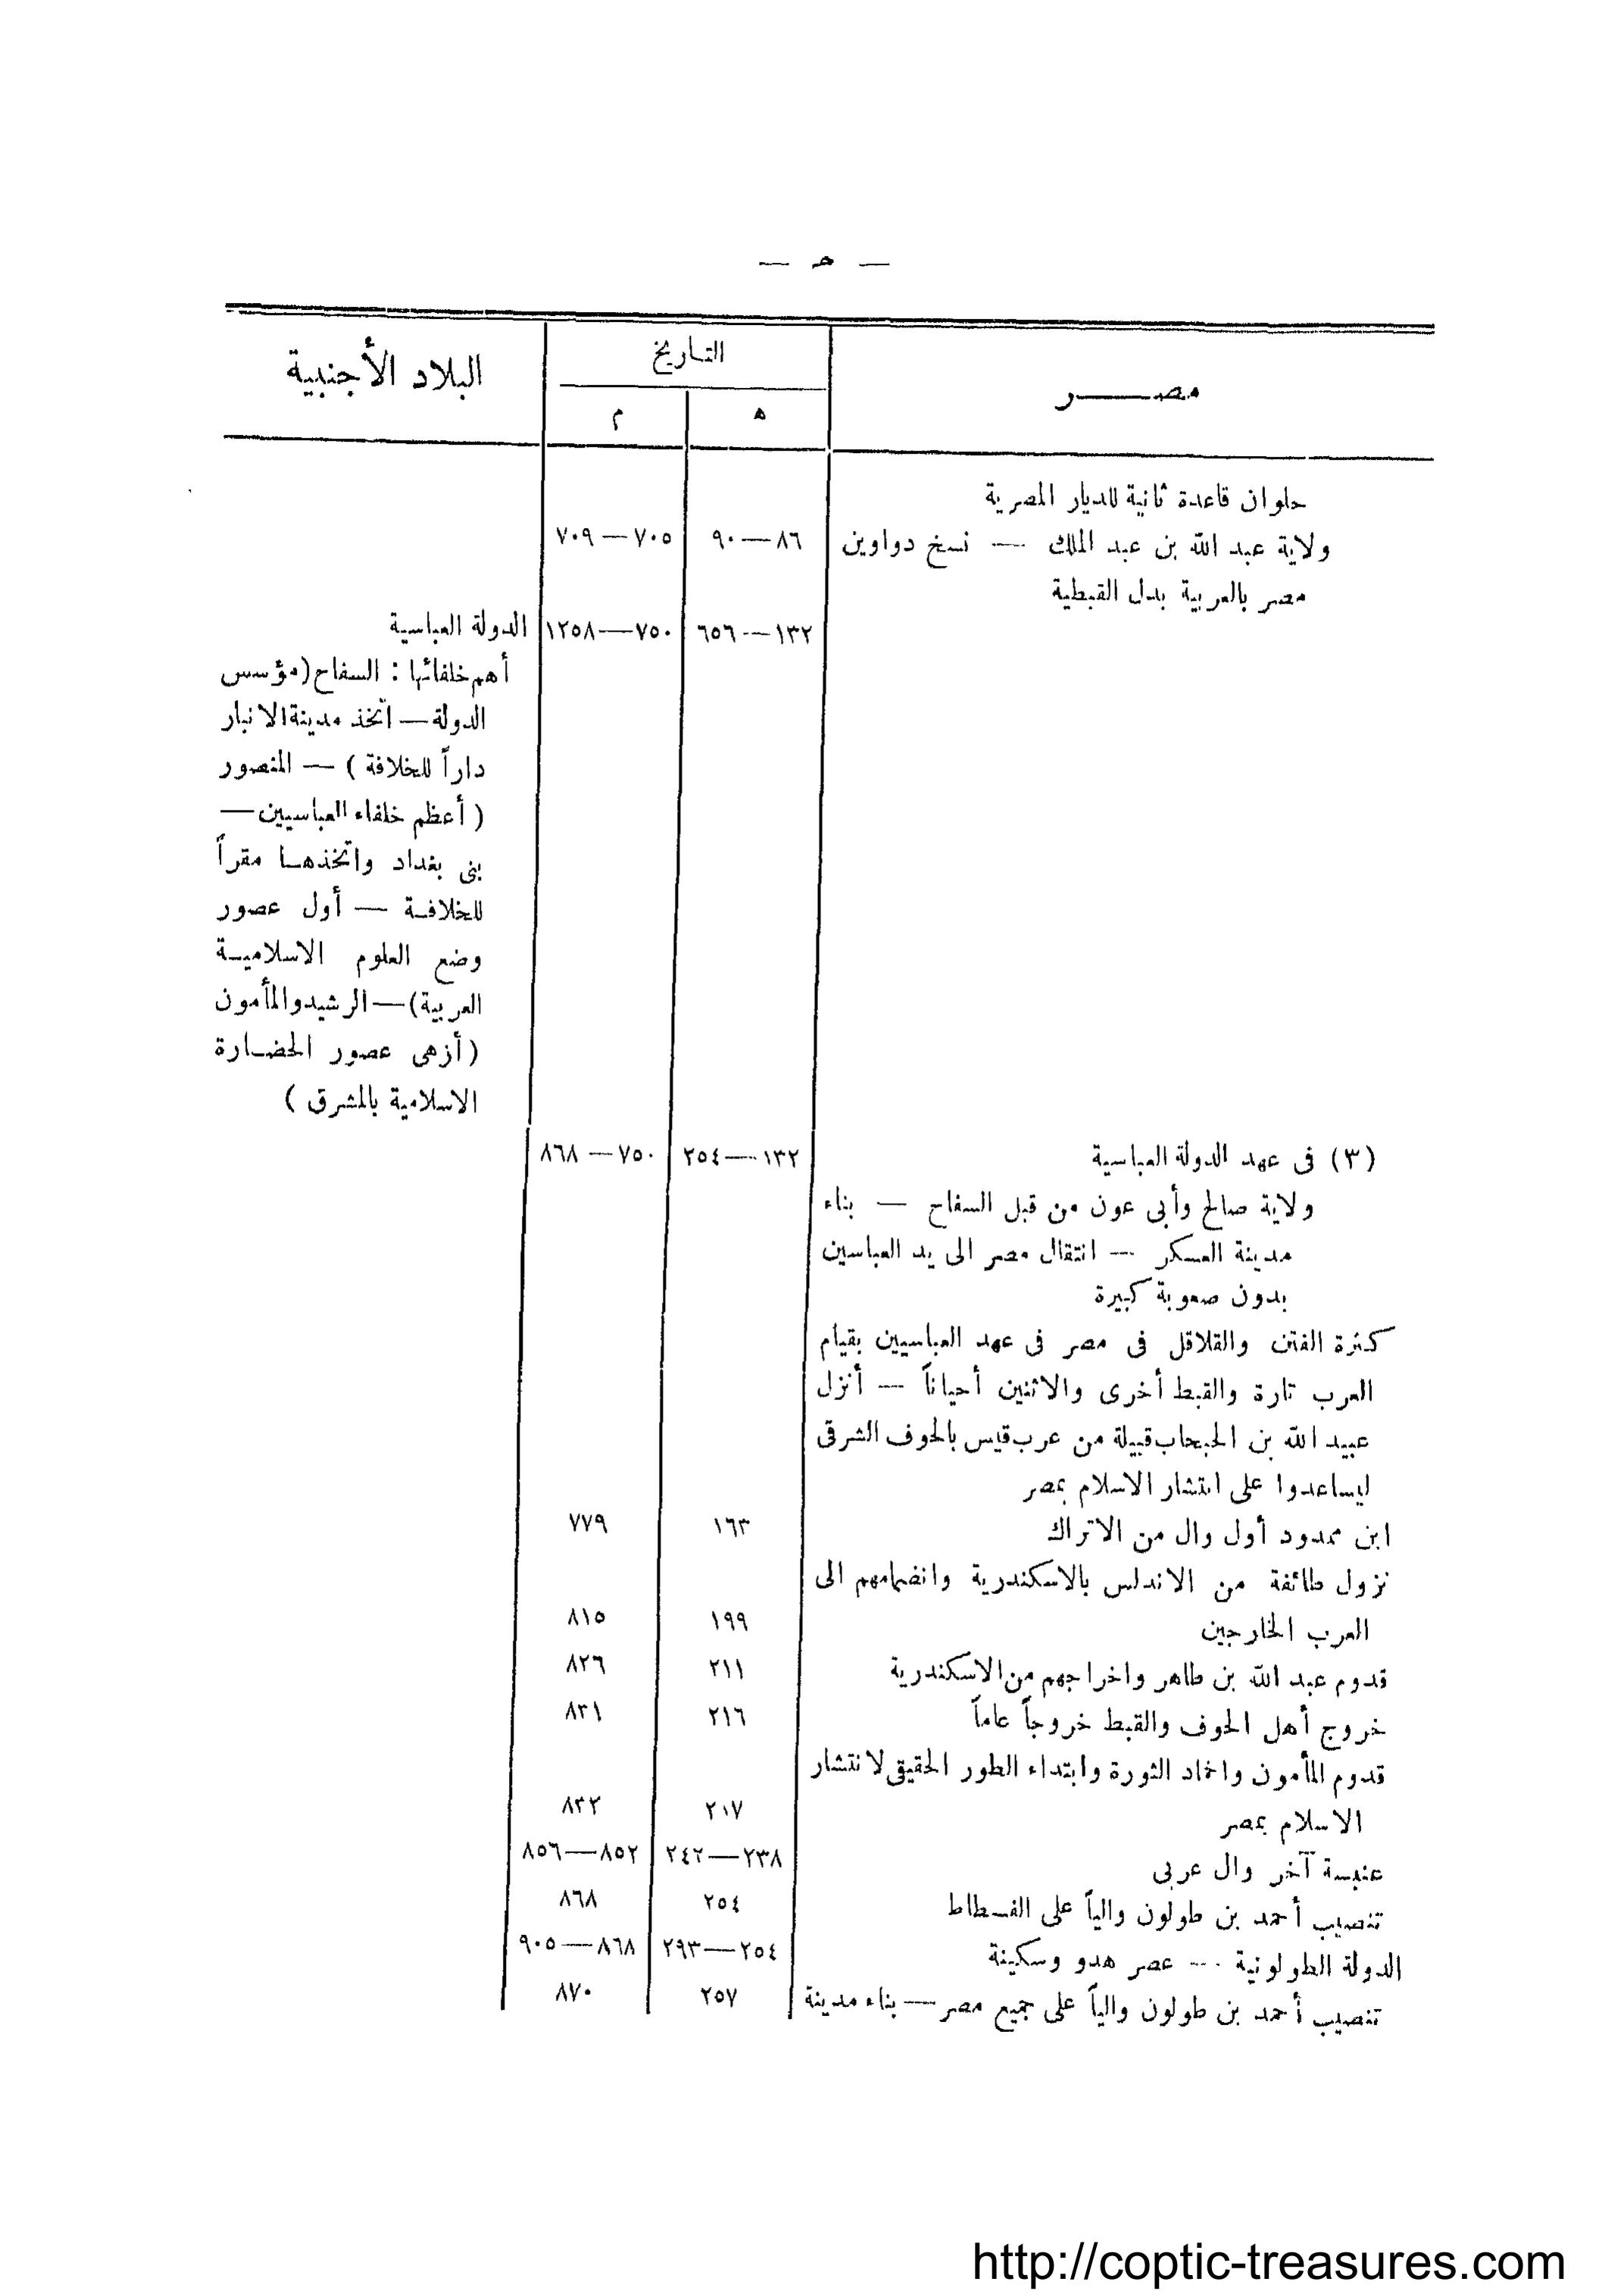 — حـ —
مصـــر
التـاريخ
البلاد الأجنبية
ه
م
حلوان قاعدة ثانية للديار المصرية
ولاية عبد الله بن عبد الملك — نسخ دواوين
٨٦—٩٠
٧٠٥—٧٠٩
مصر بالعربية بدل القبطية
١٣٢—٦٥٦
٧٥٠—١٢٥٨
الدولة العباسية
أهم خلفائها : السفاح (مؤسس
الدولة — اتخذ مدينة الانبار
داراً للخلافة ) — المنصور
( أعظم خلفاء العباسيين —
بنى بغداد واتخذهـا مقراً
للخلافـة — أول عصور
وضع العلوم الاسلاميـة
العربية) — الرشيد والمأمون
( أزهى عصور الحضـارة
الاسلامية بالمشرق )
(٣) فى عهد الدولة العباسية
١٣٢—٢٥٤
٧٥٠—٨٦٨
ولاية صالح وأبى عون من قبل السفاح — بناء
مدينة العسكر — انتقال مصر الى يد العباسين
بدون صعوبة كبيرة
كثرة الفتن والقلاقل فى مصر فى عهد العباسيين بقيام
العرب تارة والقبط أخرى والاثنين أحياناً — أنزل
عبيد الله بن الحبحاب قبيلة من عرب قيس بالحوف الشرقى
ليساعدوا على انتشار الاسلام بمصر
ابن ممدود أول وال من الاتراك
١٦٣
٧٧٩
نزول طائفة من الاندلس بالاسكندرية وانضمامهم الى
العرب الخارجين
١٩٩
٨١٥
قدوم عبد الله بن طاهر واخراجهم من الاسكندرية
٢١١
٨٢٦
خروج أهل الحوف والقبط خروجاً عاماً
٢١٦
٨٣١
قدوم المأمون واخماد الثورة وابتداء الطور الحقيقى لانتشار
الاسلام بمصر
٢١٧
٨٣٢
عنبسة آخر وال عربى
٢٣٨—٢٤٢
٨٥٢—٨٥٦
تنصيب أحمد بن طولون والياً على الفسطاط
٢٥٤
٨٦٨
الدولة الطولونية — عصر هدو وسكينة
٢٥٤—٢٩٣
٨٦٨—٩٠٥
تنصيب أحمد بن طولون والياً على جميع مصر — بناء مدينة
٢٥٧
٨٧٠
http://coptic-treasures.com